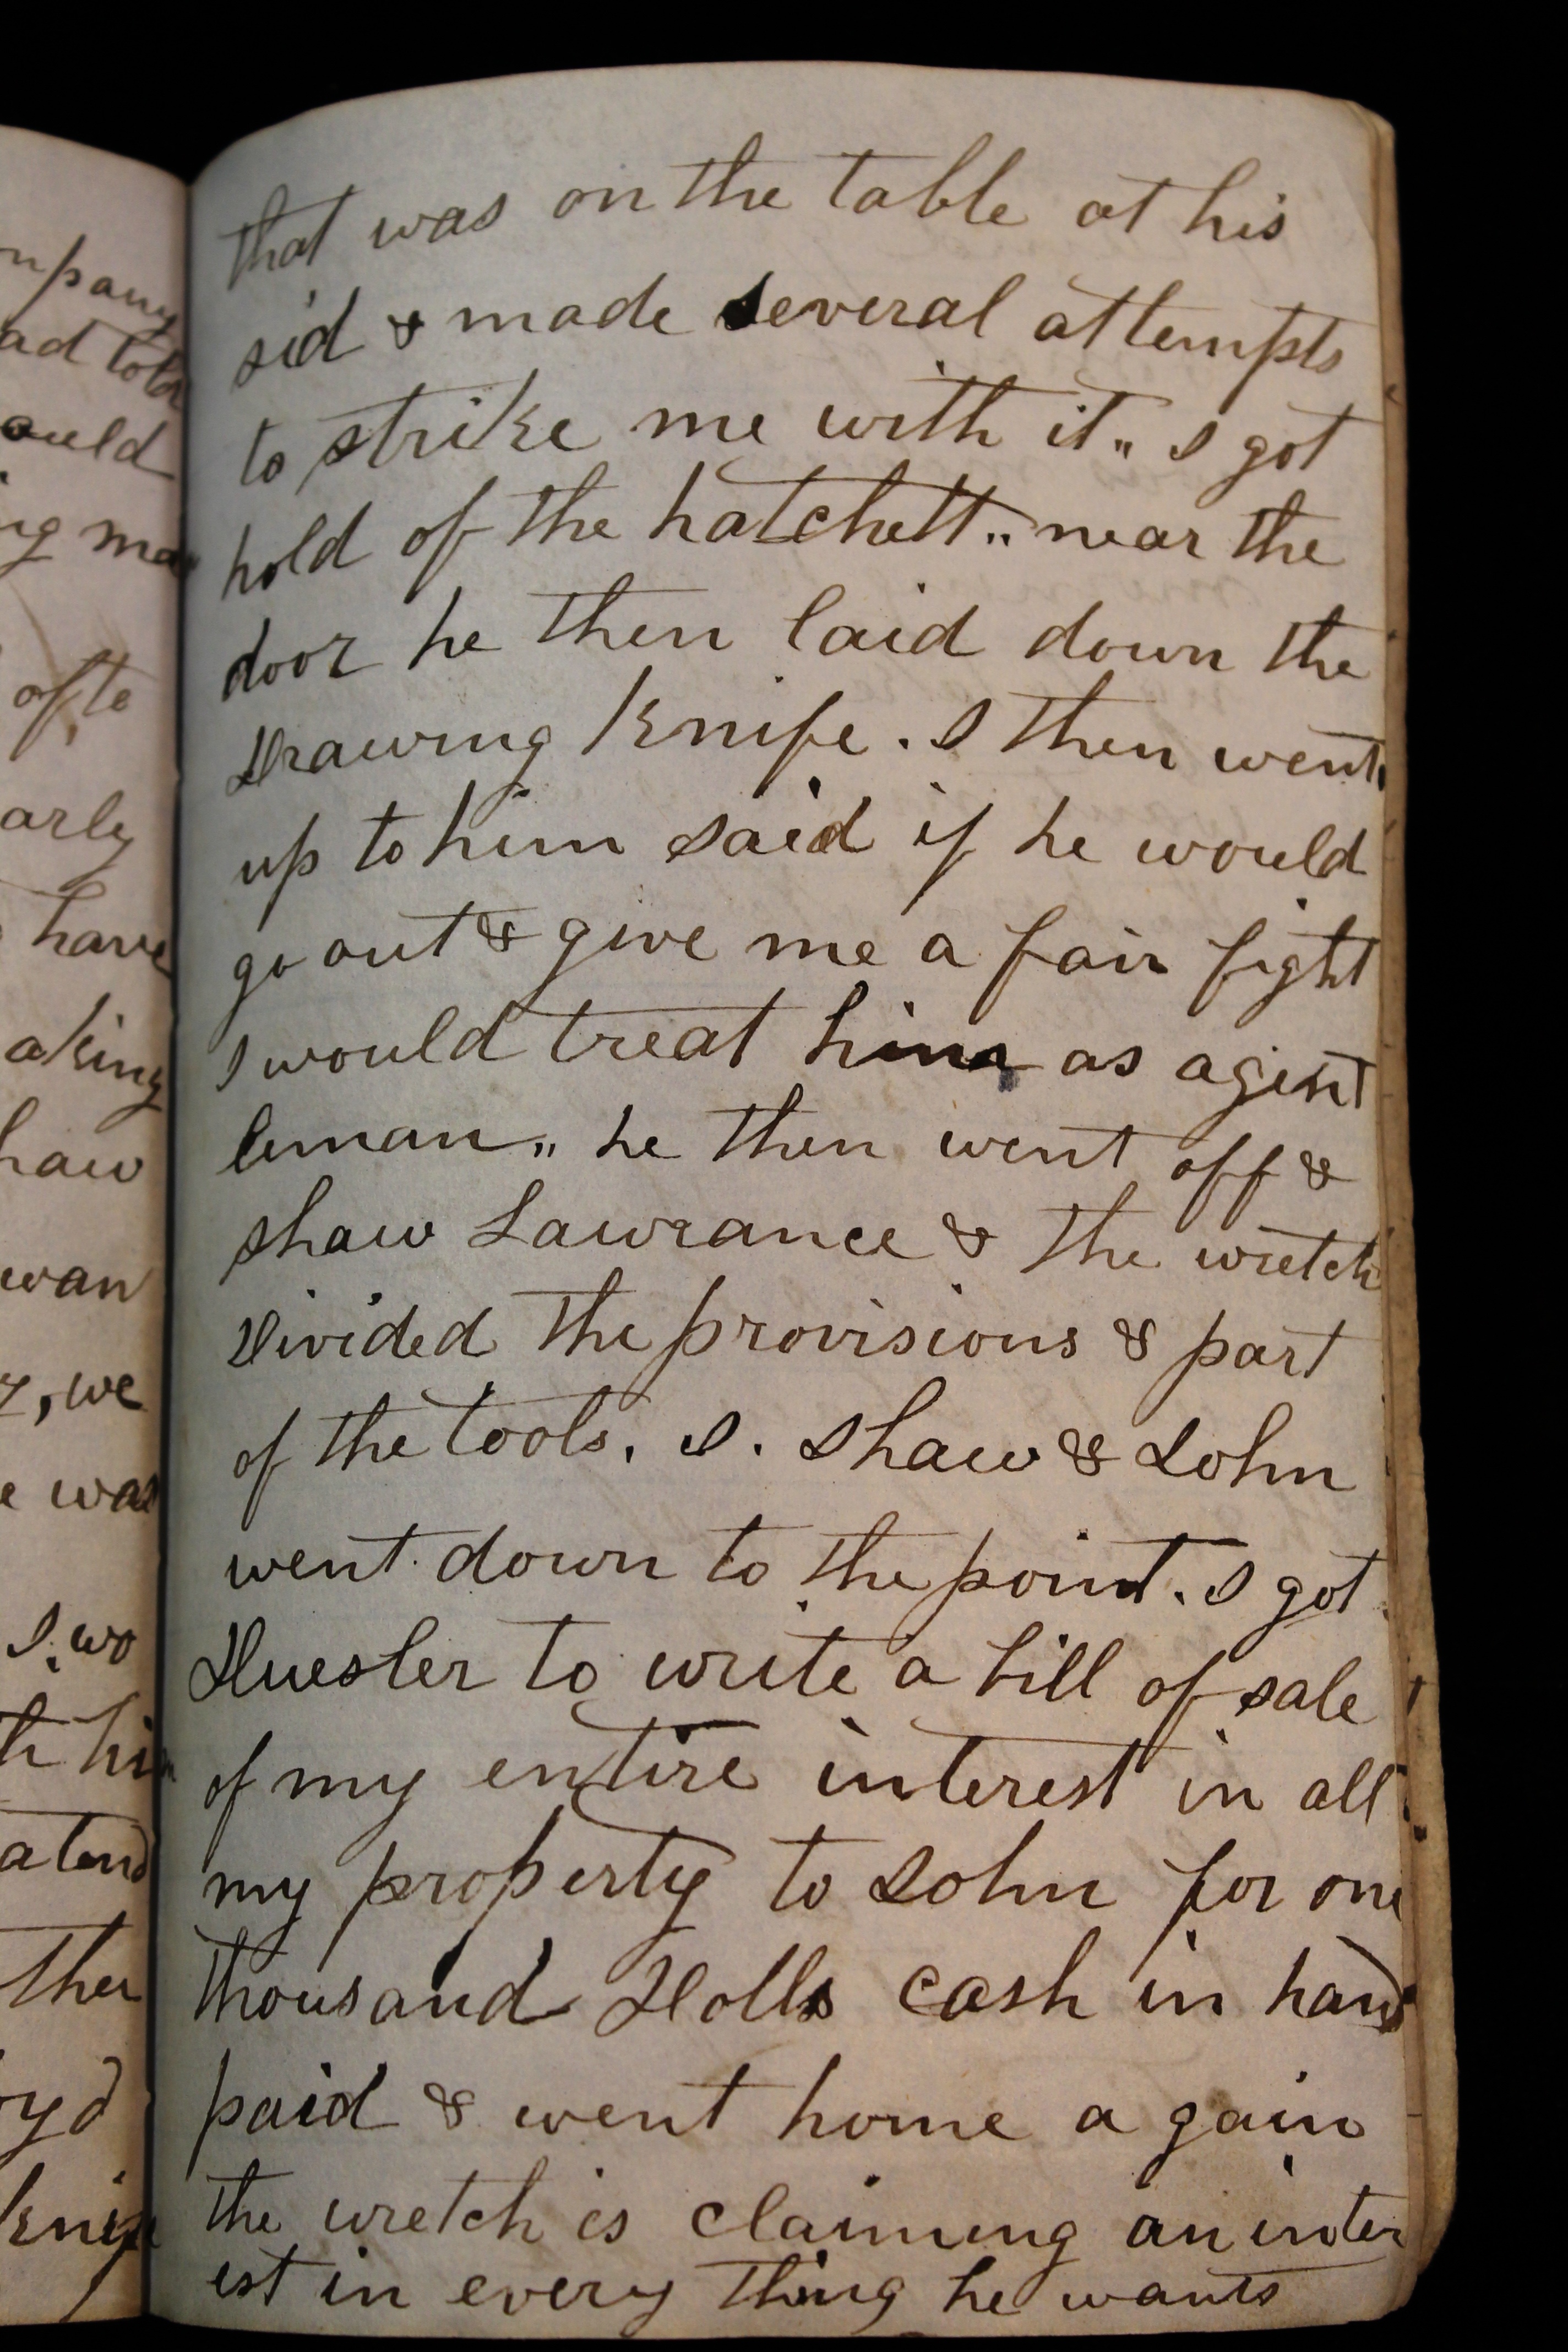 npany
ad told
ould
ng ma
ofte
arly
have
aking
haw
wan
y, we
e was
I. wo
h him
a tend
ther
oyd
knife
that was on the table at his
sid & made several attempts
to strike me with it„ I got
hold of the hatchett„ near the
door he then laid down the
Drawing knife. I then went
up to him said if he would
go out & give me a fair fight
I would treat him as agent
leman„ he then went off &
shaw Lawrance & the wretch
Divided the provisions & part
of the tools. I. Shaw & John
went down to the point. I got
to write a bill of sale
of my entire interest in all
my property to John for one
thousand Dolls cash in hand
paid & went home a gain
the wretch is claiming an inter
est in every thing he wants